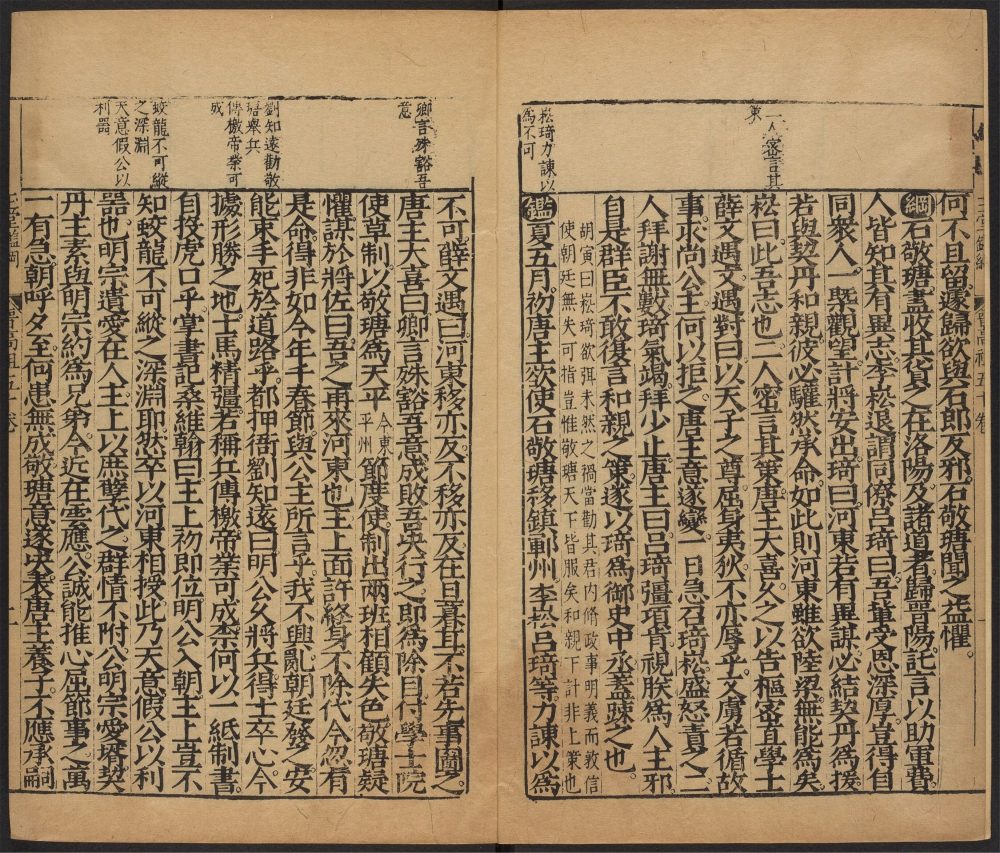 何不且留遽歸欲與石郎反邪石敬瑭聞之益懼。
綱石敬瑭盡收其貨之在洛陽及諸道者歸晉陽託言以助軍費
人皆知其有異志李崧退謂同僚呂琦曰吾輩受恩深厚豈得自
同衆人一槩觀望計將安出琦曰河東若有異謀必結契丹爲援
若與契丹和親彼必驩然承命如此則河東雖欲陸梁無能爲矣
崧曰此吾志也二人密言其策唐主大喜久之以告樞密直學士
薛文遇文遇對曰以天子之尊屈身夷狄不亦辱乎又虜若循故
事求尚公主何以拒之唐主意遂變一日急召琦崧盛怒責之二
人拜謝無數琦氣竭拜少止唐主曰呂琦彊項肯視朕爲人主邪
自是群臣不敢復言和親之策遂以琦爲御史中丞蓋踈之也
胡寅曰崧琦欲弭未然之禍當勸其君内脩政事明義而敦信
使朝廷無失可指豈惟敬瑭天下皆服矣和親下計非上策也
鑑夏五月初唐主欲使石敬瑭移鎮鄆州李崧呂琦等力諫以爲
一人密言其
策
崧琦力諫以
爲不可
不可薛文遇曰河東移亦反不移亦反在旦暮耳不若先事圖之
唐主大喜曰卿言殊豁吾意成敗吾决行之即爲除目付學士院
使草制以敬瑭爲天平今東平州節度使制出兩班相顧失色敬瑭疑
懼謀於將佐曰吾之再來河東也主上面許終身不除代今忽有
是命得非如今年千春節與公主所言乎我不興亂朝廷發之安
能束手死於道路乎都押衙劉知遠曰明公久將兵得士卒心今
據形勝之地士馬精彊若稱兵傳檄帝業可成柰何以一紙制書
自投虎口乎掌書記桑維翰曰主上初即位明公入朝主上豈不
知蛟龍不可縱之深淵耶然卒以河東相授此乃天意假公以利
器也明宗遺愛在人主上以庶孽代之群情不附公明宗愛壻契
丹主素與明宗約爲兄弟今近在雲應公誠能推心屈節事之萬
一有急朝呼夕至何患無成敬瑭意遂决表唐主養子不應承嗣
卿言殊豁吾
意
劉知遠勸敬
瑭舉兵
傳檄帝業可
成
蛟龍不可縱
之深淵
天意假公以
利器